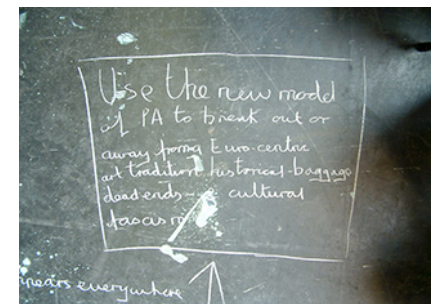 Use the new model
of PA to break out or
away from Euro-centric
art tradition historical-baggage
dead ends - cultural
fascism
pears everywhere